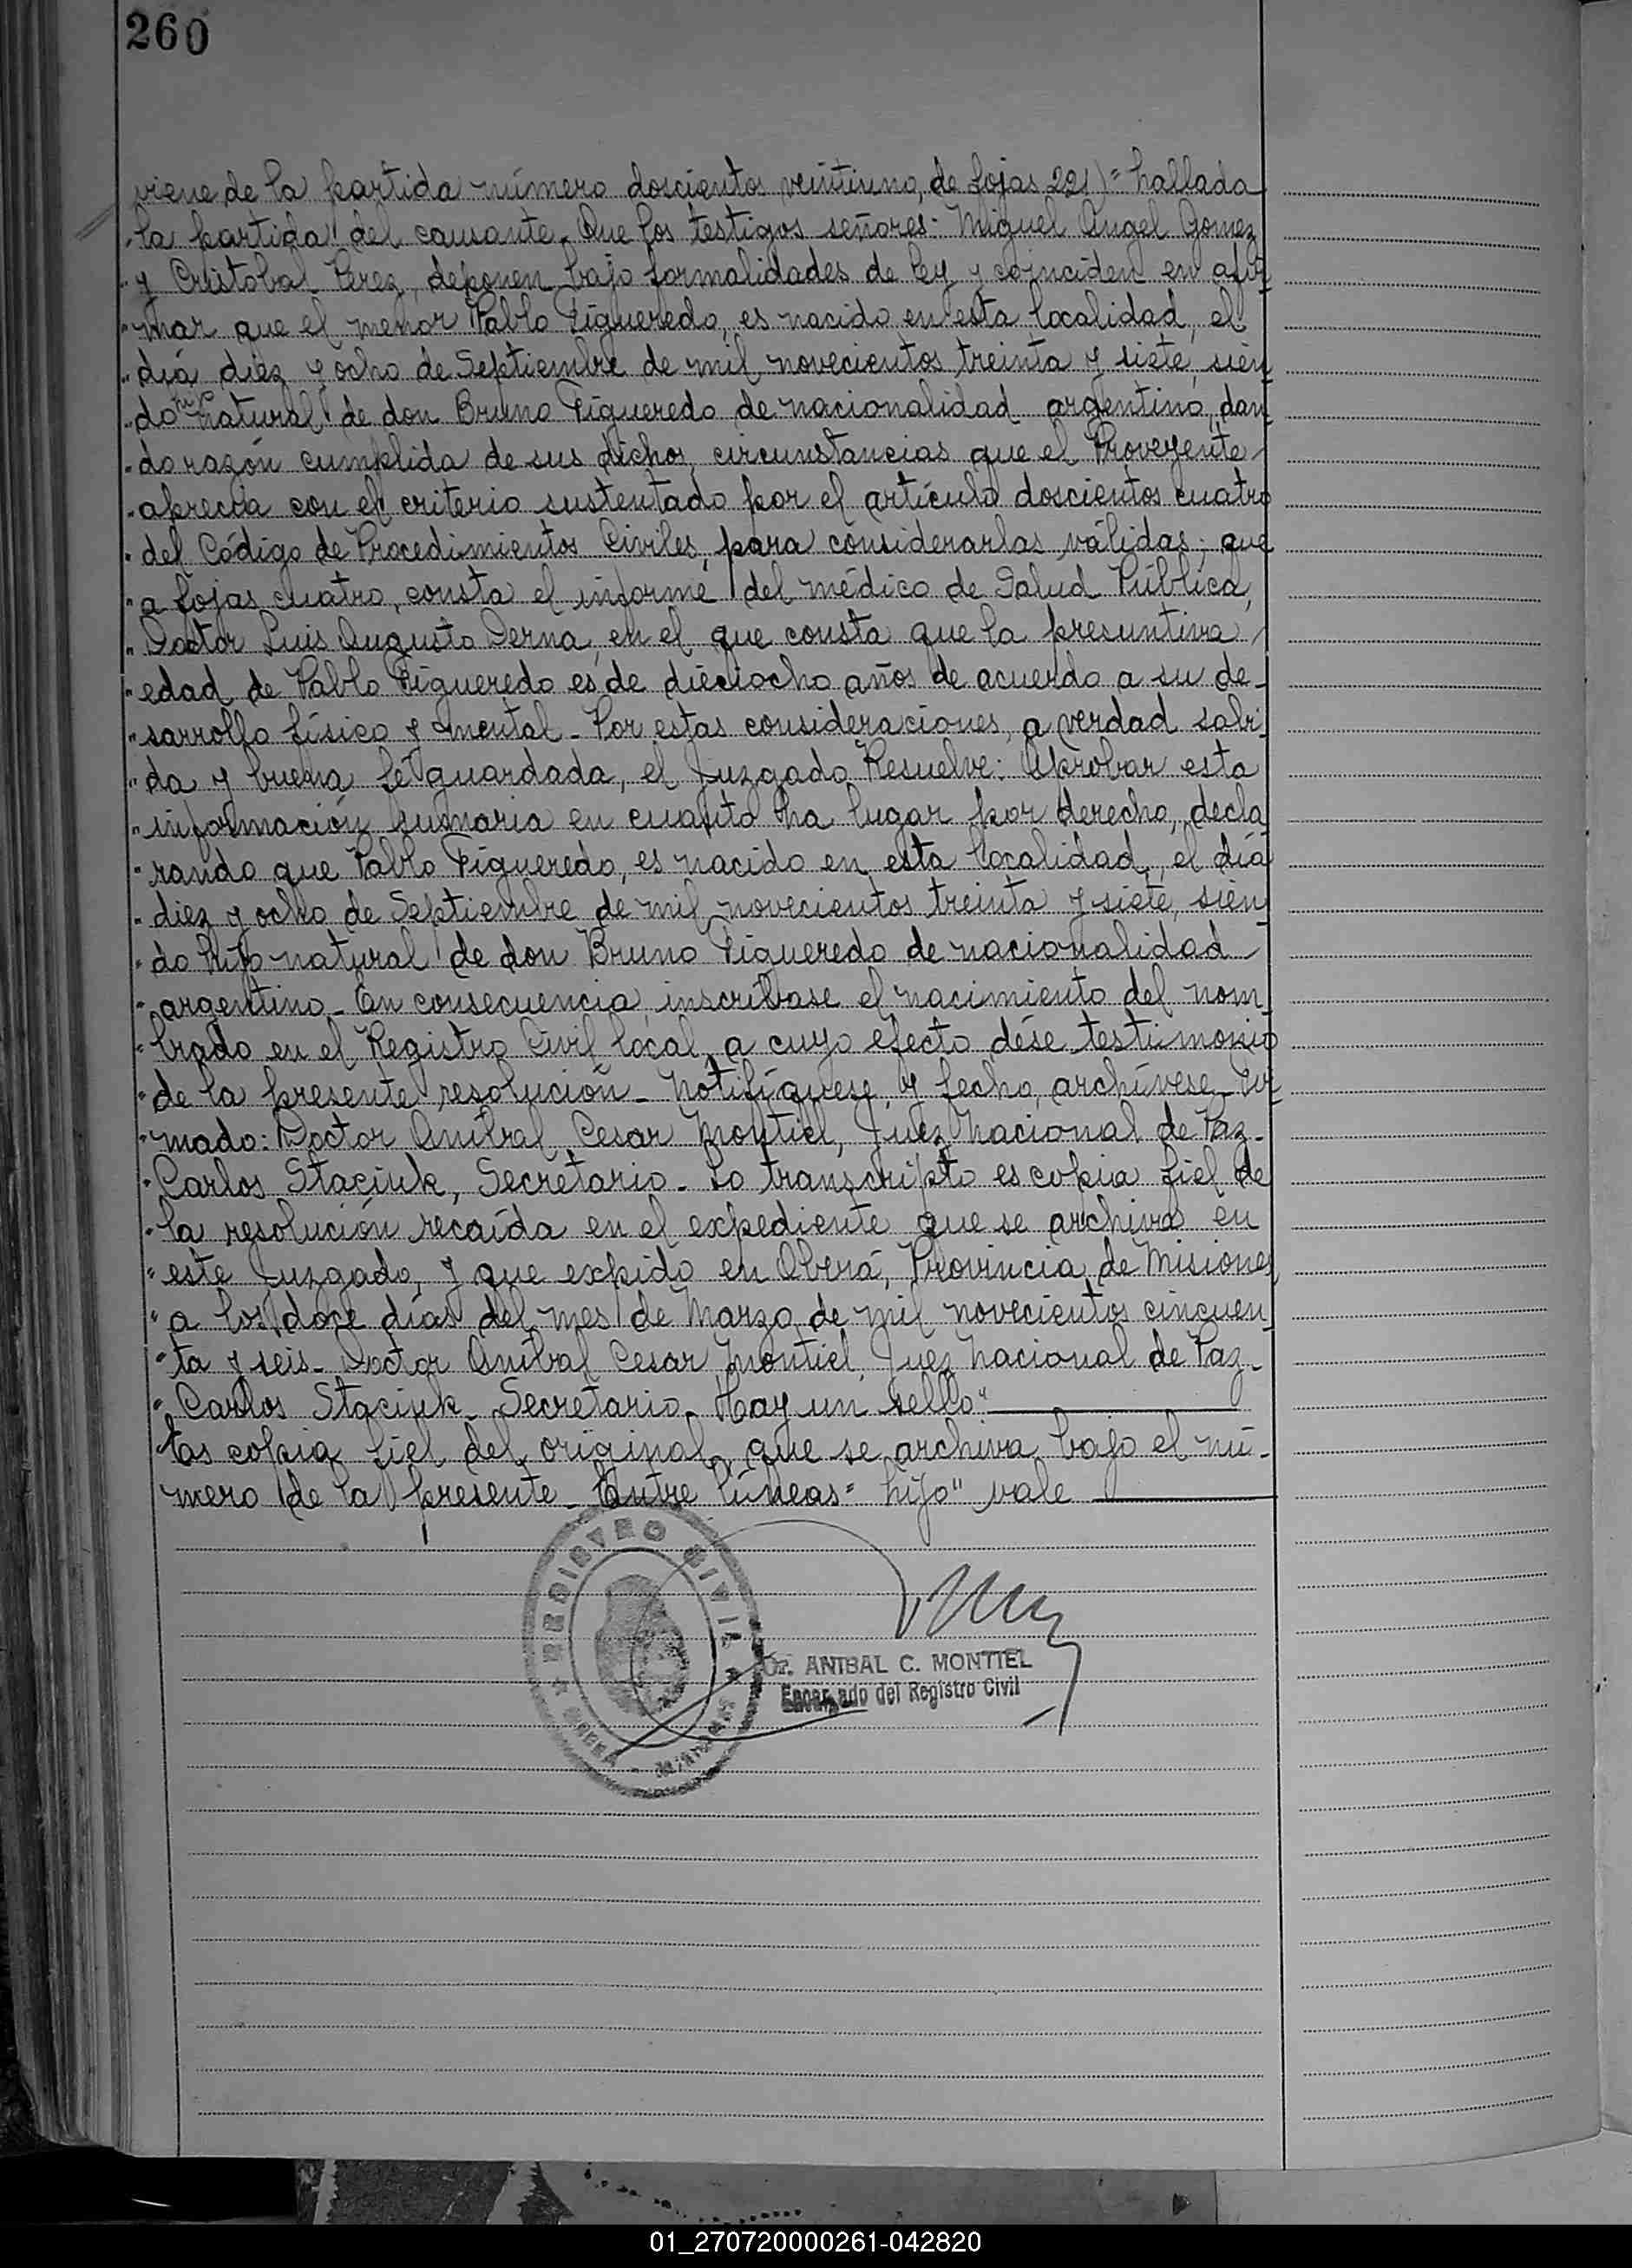 260
viene de la partida número doscientos veintiuno, de fojas 221)" hallada
"la partida del causante. Que los testigos señores: Miguel Angel Gomez
"y Cristobal Perez, deponen bajo formalidades de ley y coinciden en afir
"mar que el menor Pablo Figueredo, es nacido en esta localidad, el
"día diez y ocho de Septiembre de mil novecientos treinta y siete, sien
"do hijo natural de don Bruno Figueredo de nacionalidad argentino, dan
"do razón cumplida de sus dichos, circunstancias que el Proveyente
"aprecia con el criterio sustentado por el artículo doscientos cuatro
"del Código de Procedimientos Civiles, para considerarlas válidas; que
"a fojas cuatro, consta el informe del médico de Salud Pública,
"Doctor Luis Augusto Derna, en el que consta que la presuntiva
"edad de Pablo Figueredo es de dieciocho años de acuerdo a su de-
"sarrollo físico y mental - Por estas consideraciones, a verdad sabi
"da y buena fé guardada, el Juzgado Resuelve: Aprobar esta
"información sumaria en cuanto ha lugar por derecho, decla
"rando que Pablo Figueredo, es nacido en esta localidad, el día
"diez y ocho de Septiembre de mil novecientos treinta y siete, sien
"do hijo natural de don Bruno Figueredo de nacionalidad
"argentino - En consecuencia, inscríbase el nacimiento del nom
"brado en el Registro Civil local, a cuyo efecto dése testimonio
"de la presente resolución - Notifíquese y fecho, archívese - Fir
"mado: Doctor Anibal Cesar Montiel, Juez Nacional de Paz -
"Carlos Staciuk, Secretario - Lo transcripto es copia fiel de
"la resolución recaída en el expediente que se archiva en
"este Juzgado, y que expido en Oberá, Provincia de Misiones,
"a los doce días del mes de Marzo de mil novecientos cincuen
"ta y seis - Doctor Anibal Cesar Montiel, Juez Nacional de Paz -
"Carlos Staciuk - Secretario - Hay un sello"
Es copia fiel del original, que se archiva bajo el nú-
mero de la presente - Entre líneas = hijo" vale
REGISTRO CIVIL
OBERA - MISIONES
Dr. ANIBAL C. MONTIEL
Encargado del Registro Civil
01_270720000261-042820